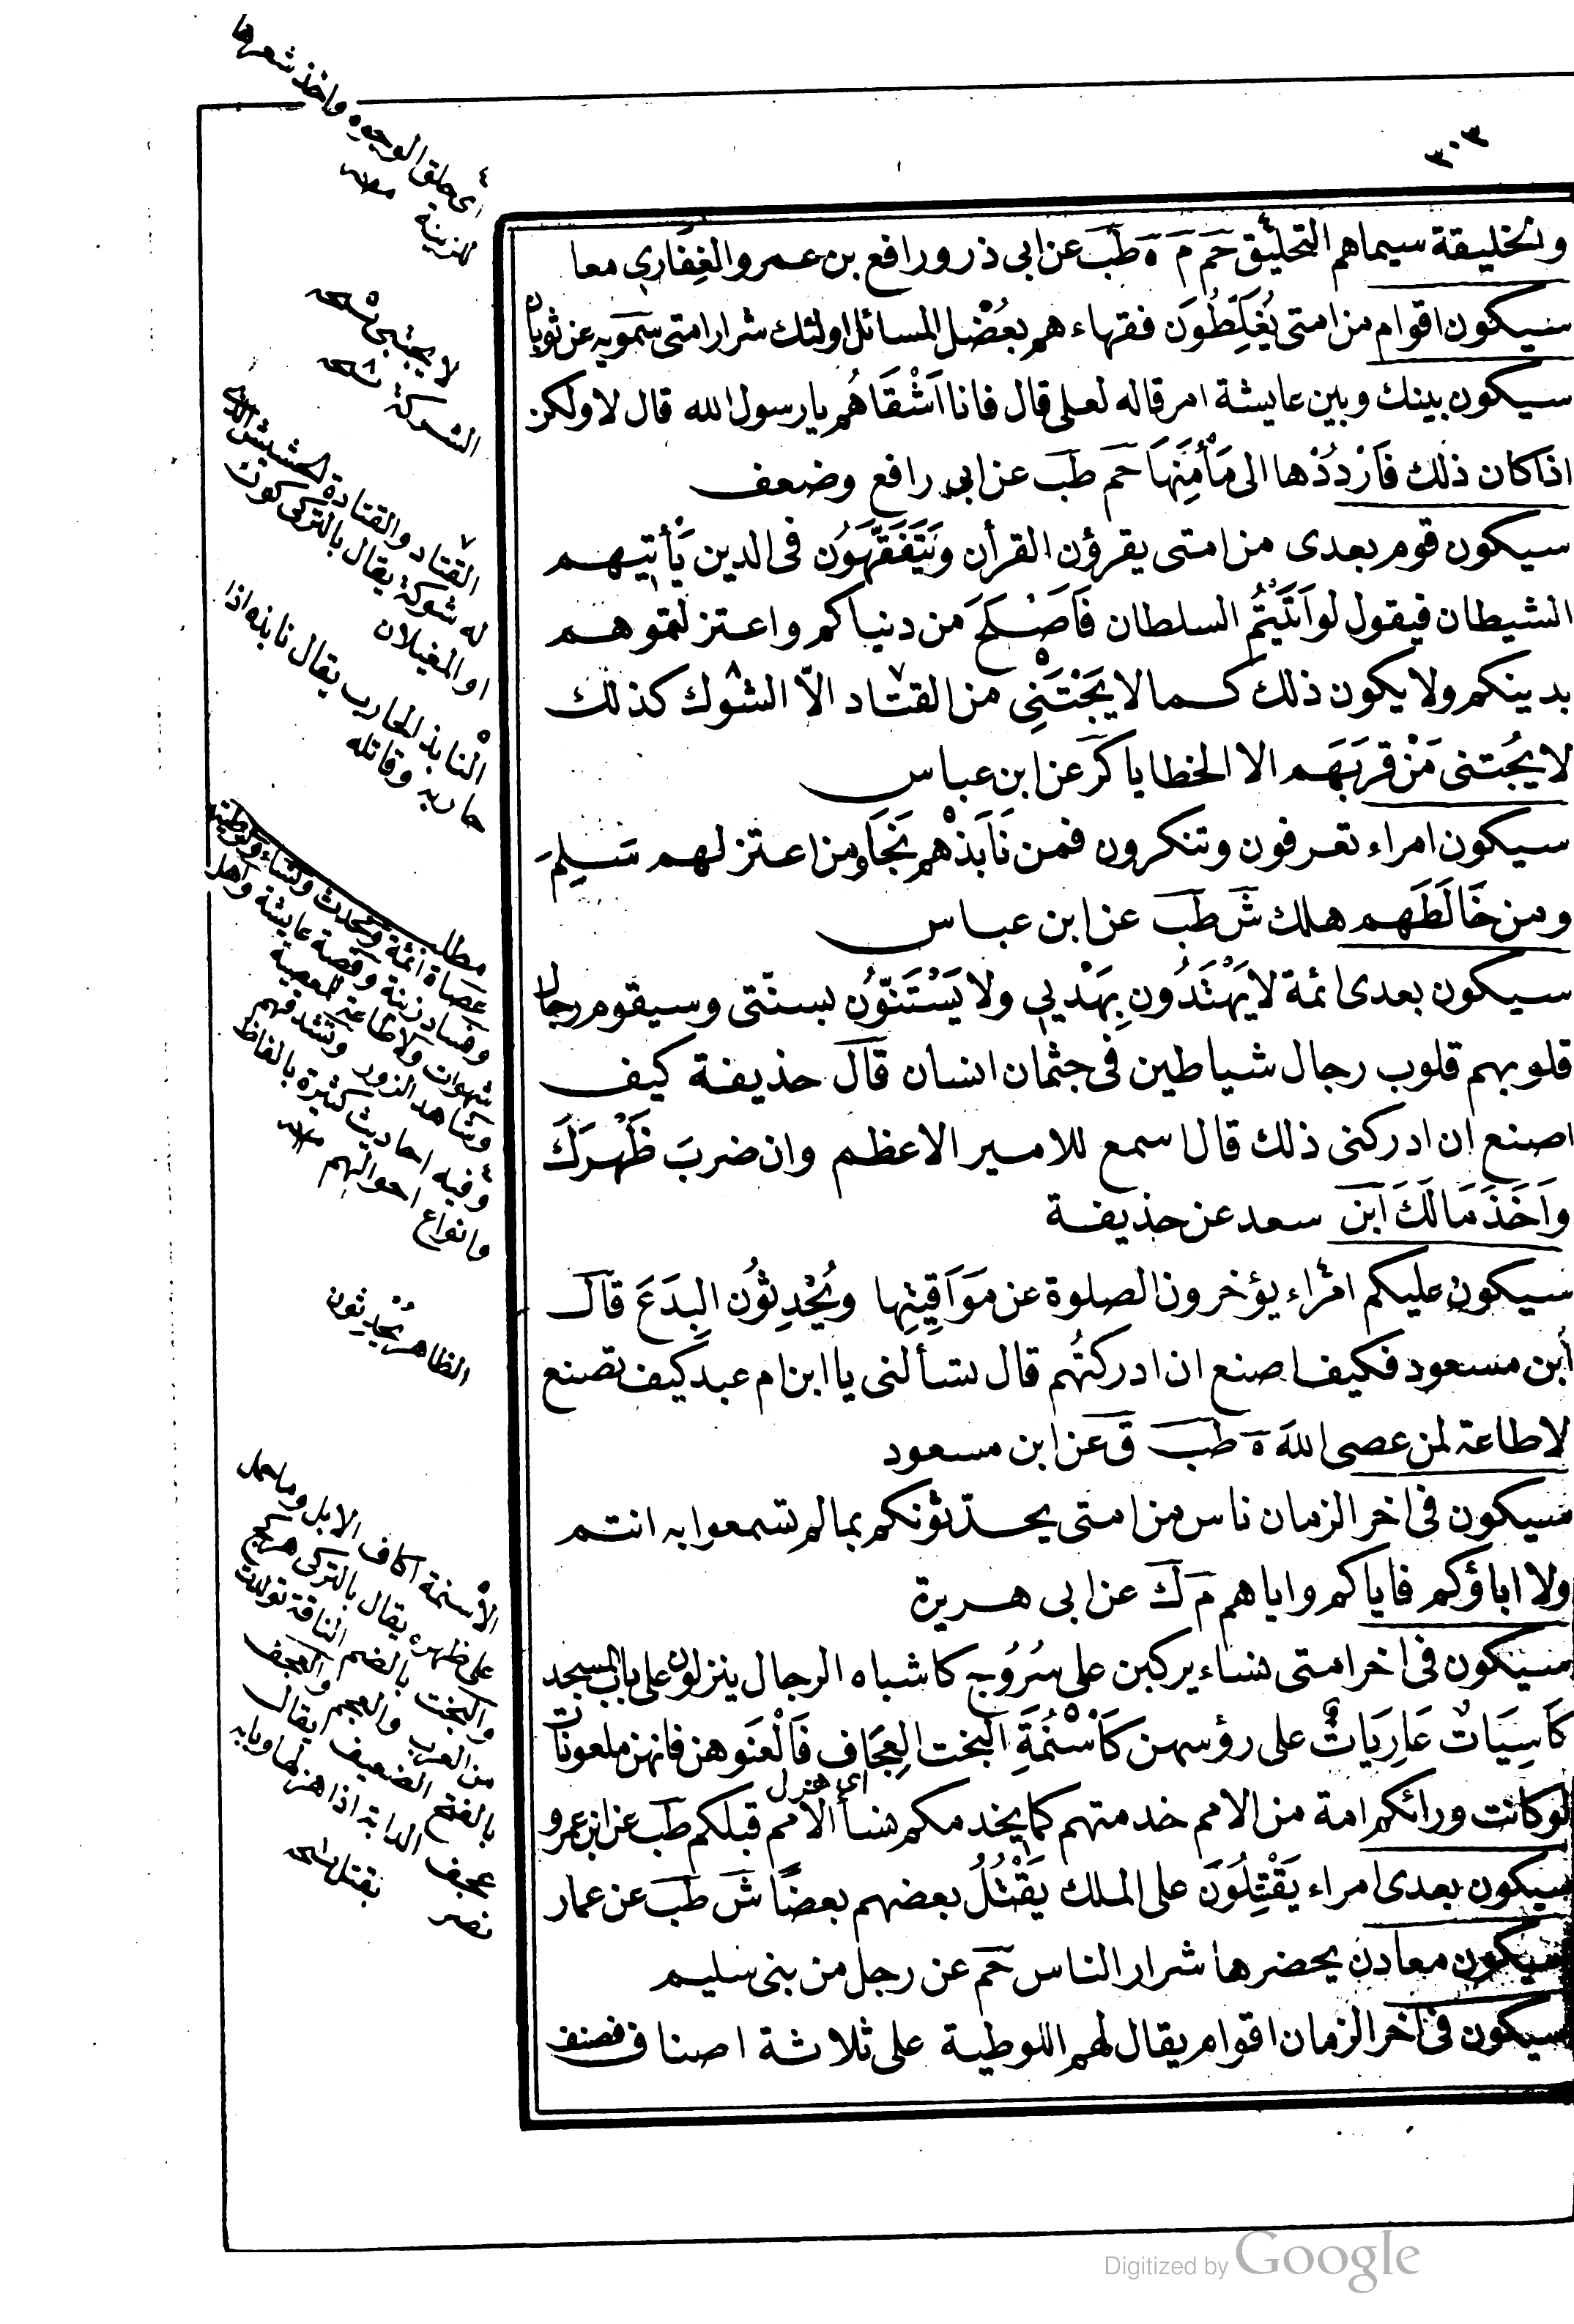 ٣٠٣
والخليقة سيماهم التحليق حم م ه طب عن ابى ذر ورافع بن عمرو الغِفَارى معا
سيكون اقوام من امتى يُغَلِّطُونَ فقهاءهم بعُضْل المسائل اولئك شرار امتى سَمَوَيه عن ثوبان
سيكون بينك وبين عايشة امر قاله لعلى قال فانا اَشْقَاهُم يا رسول الله قال لا ولكن
اذا كان ذلك فَارْدُدْها الى مَأْمَنِهَا حم طب عن ابى رافع وضعف
سيكون قوم بعدى من امتى يقرؤن القرأن وَيَتَفَقَّهَوُن فى الدين يَأتيهم
الشيطان فيقول لو اَتَيْتُم السلطان فَاَصْلَحَ من دنياكم واعتزلتموهم
بدينكم ولا يكون ذلك كما لا يَجْتَنِى من القتاد الاّ الشوك كذلك
لا يُجْتنى مَنْ قربَهَم الا الخطايا كر عن ابن عباس
سيكون امراء تعرفون وتنكرون فمن نَابَذْهم نَجَا ومن اعتزلهم سَلِمَ
ومن خَالَطَهم هلك ش طب عن ابن عباس
سيكون بعدى ائمة لا يَهْتَدُون بِهَدْيى ولا يَسْتَنّوُن بسنّتى وسيقوم رجال
قلوبهم قلوب رجال شياطين فى جثمان انسان قال حذيفة كيف
اصنع ان ادركنى ذلك قال اسمع للامير الاعظم وان ضربَ ظَهْرَكَ
وَاَخَذَ مَالَكَ ابن سعد عن حذيفة
سيكون عليكم امراء يؤخرون الصلوة عن مَوَاقِيتِها ويُحْدِثوُن البِدَعَ قال
اُبن مسعود فكيف اصنع ان ادركتُهم قال تسألنى يا ابن ام عبد كيف تصنع
لا طاعة لمن عصى الله ه طب ق عن ابن مسعود
سيكون فى اخر الزمان ناس من امتى يحدّثونكم بما لم تسمعوا به انتم
ولا اباؤكم فاياكم واياهم م ك عن ابى هريرة
سيكون فى اخر امتى نساء يركبن على سُرُوج كاشباه الرجال ينزلون على باب المسجد
كَاسِيَات عَارِيَاتٌ على رؤسهن كَاَسْنُمَةِ البخت العِجَاف فَالْعَنَوهن فانهن ملعونات
اى هزل
لو كانت ورائكم امة من الامم خدمتهم كما يخدمكم نسأ الامم قبلكم طب عن ابن عمرو
سيكون بعدى امراء يَقْتِلُونَ على الملك يَقْتُلُ بعضهم بعضًا ش طب عن عمار
سيكون معادن يحضرها شرار الناس حم عن رجل من بنى سليم
سيكون فى اخر الزمان اقوام يقال لهم اللوطية على ثلاثة اصناف فصنف
٤ اى حلق الوجوه واخذ شعرها
للزينة
لا يجتبى
الشوكة
٧ القتاد والقتادة
له شوكة يقال بالتركى
او المغيلان
٥ النابذ المحارب يقال نابذه اذا
حاربه وقاتله
مطلب
عصاة ائمة
وفساد زينة وقصة عايشة واهل
شهوات ولا طاعة لمعصية
وشاهد الزور
وفيه احاديث كثيرة بالفاظ
وانواع احوالهم
الظاهر يُحْدِثون
٥ الاسنمة اكاف الابل وما حمل
على ظهره يقال بالتركى
والبخت بالضم الناقة تولدت
من العرب والعجم والعجف
بالفتح الضعيف يقال
عجف الدابة اذا هزلها وبابه
نصر
Digitized by Google